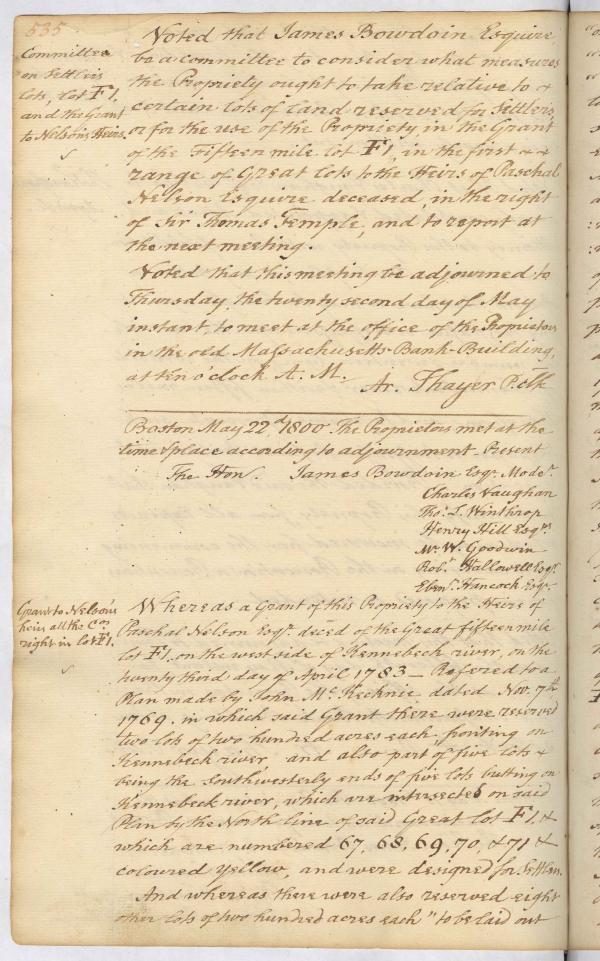 535
Committee
on Settlers
Lots, Lot F1,
and the Grant
to Nelson's Heirs.
Voted that James Bowdoin Esquire
be a committee to consider what measures
the Propriety ought to take relative to &
certain lots of land reserved for Settlers,
or for the use of the Propriety, in the Grant
of the Fifteen mile lot F1, in the first &c
range of Great lots to the Heirs of Paschal
Nelson Esquire deceased, in the right
of Sir Thomas Temple, and to report at
the next meeting.
Voted that this meeting be adjourned to
Thursday, the twenty second day of May
instant, to meet at the office of the Proprietors
in the old Massachusetts-Bank-Building,
at ten o'clock A. M.
Ar. Thayer P. Clk
Boston May 22d 1800. The Proprietors met at the
time & place according to adjournment. Present
The Hon. James Bowdoin Esqr. Moder.
Charles Vaughan
Tho. L. Winthrop
Henry Hill Esqrs
Mr. W. Goodwin
Robt. Hallowell Esqr.
Ebenr. Hancock Esqr.
Grant to Nelson's
heirs all the Com
right in lot F1.
Whereas a Grant of this Propriety to the Heirs of
Paschal Nelson Esqr. deced of the Great fifteen mile
lot F1. on the west side of Kennebeck river, on the
twenty third day of April 1783 — Refered to a
Plan made by John McKechnie dated Nov. 7th
1769. in which said Grant there were reserved
two lots of two hundred acres each, fronting on
Kennebeck river, and also part of five lots &
being the southwesterly ends of five lots butting on
Kennebeck river, which are intersected on said
Plan by the North line of said Great lot F1, &
which are numbered 67, 68, 69, 70, & 71 &
coloured yellow, and were designed for Settlers.
And whereas there were also reserved eight
other lots of two hundred acres each "to be laid out